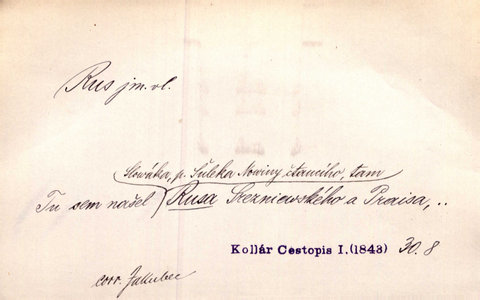 Rus jm. vl.
Slowáka, p. Šuleka Nowiny čtaucího, tam
Tu sem našel Rusa Srezniewského a Preisa, ..
Kollár Cestopis I.(1843) 30.8
corr. Jakubec